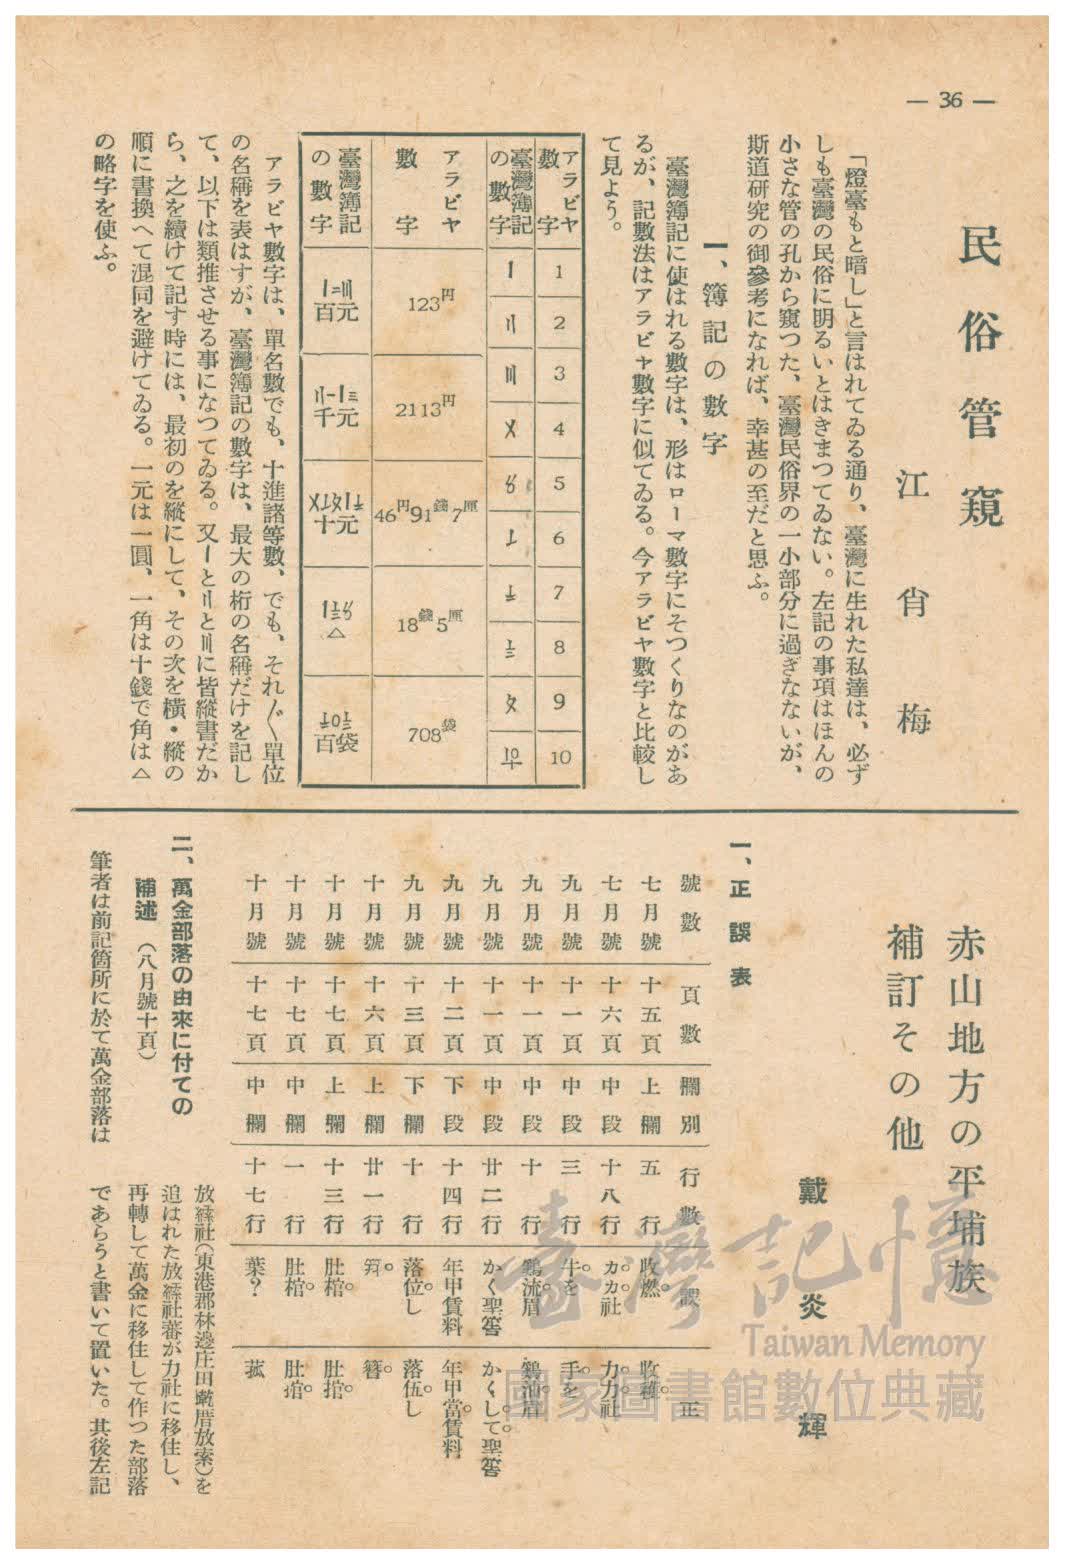 — 36 —
民俗管窺
江肖梅
「燈臺もと暗し」と言はれてゐる通り、臺灣に生れた私達は、必ず
しも臺灣の民俗に明るいとはきまつてゐない。左記の事項はほんの
小さな管の孔から窺つた、臺灣民俗界の一小部分に過ぎないが、
斯道研究の御參考になれば、幸甚の至だと思ふ。
一、簿記の數字
臺灣簿記に使はれる數字は、形はローマ數字にそつくりなのがあ
るが、記數法はアラビヤ數字に似てゐる。今アラビヤ數字と比較し
て見よう。
アラビヤ數字 1 2 3 4 5 6 7 8 9 10
臺灣簿記の數字 〡 〢 〣 〤 〥 〦 〧 〨 〩
アラビヤ數字 123円 2113円 46円91錢7厘 18錢5厘 708袋
臺灣簿記の數字 〡二〣百元 〢一〡三千元 十元 △ 百袋
アラビヤ數字は、單名數でも、十進諸等數、でも、それ〴〵單位
の名稱を表はすが、臺灣簿記の數字は、最大の桁の名稱だけを記し
て、以下は類推させる事になつてゐる。又〡と〢と〣に皆縱書だか
ら、之を續けて記す時には、最初のを縱にして、その次を橫・縱の
順に書換へて混同を避けてゐる。一元は一圓、一角は十錢で角は△
の略字を使ふ。
赤山地方の平埔族
補訂その他
戴炎輝
一、正誤表
號數 頁數 欄別 行數 誤 正
七月號 十五頁 上欄 五行 收燃 收穫
七月號 十六頁 中段 十八行 カカ社 力力社
九月號 十一頁 中段 三行 牛を 手を
九月號 十一頁 中段 十行 鷄流眉 鷄池眉
九月號 十一頁 中段 廿二行 かく聖筶 かくして聖筶
九月號 十二頁 下段 十四行 年甲賃料 年甲當賃料
九月號 十三頁 下欄 十行 落位し 落伍し
十月號 十六頁 上欄 廿一行 簪
十月號 十七頁 上欄 十三行 肚棺 肚捾
十月號 十七頁 中欄 一行 肚棺 肚捾
十月號 十七頁 中欄 十七行 葉? 菰
二、萬金部落の由來に付ての
補述（八月號十頁）
筆者は前記箇所に於て萬金部落は
放𦃓社（東港郡林邊庄田墘厝放索）を
追はれた放𦃓社蕃が力社に移住し、
再轉して萬金に移住して作つた部落
であらうと書いて置いた。其後左記
臺灣記憶
Taiwan Memory
國家圖書館數位典藏